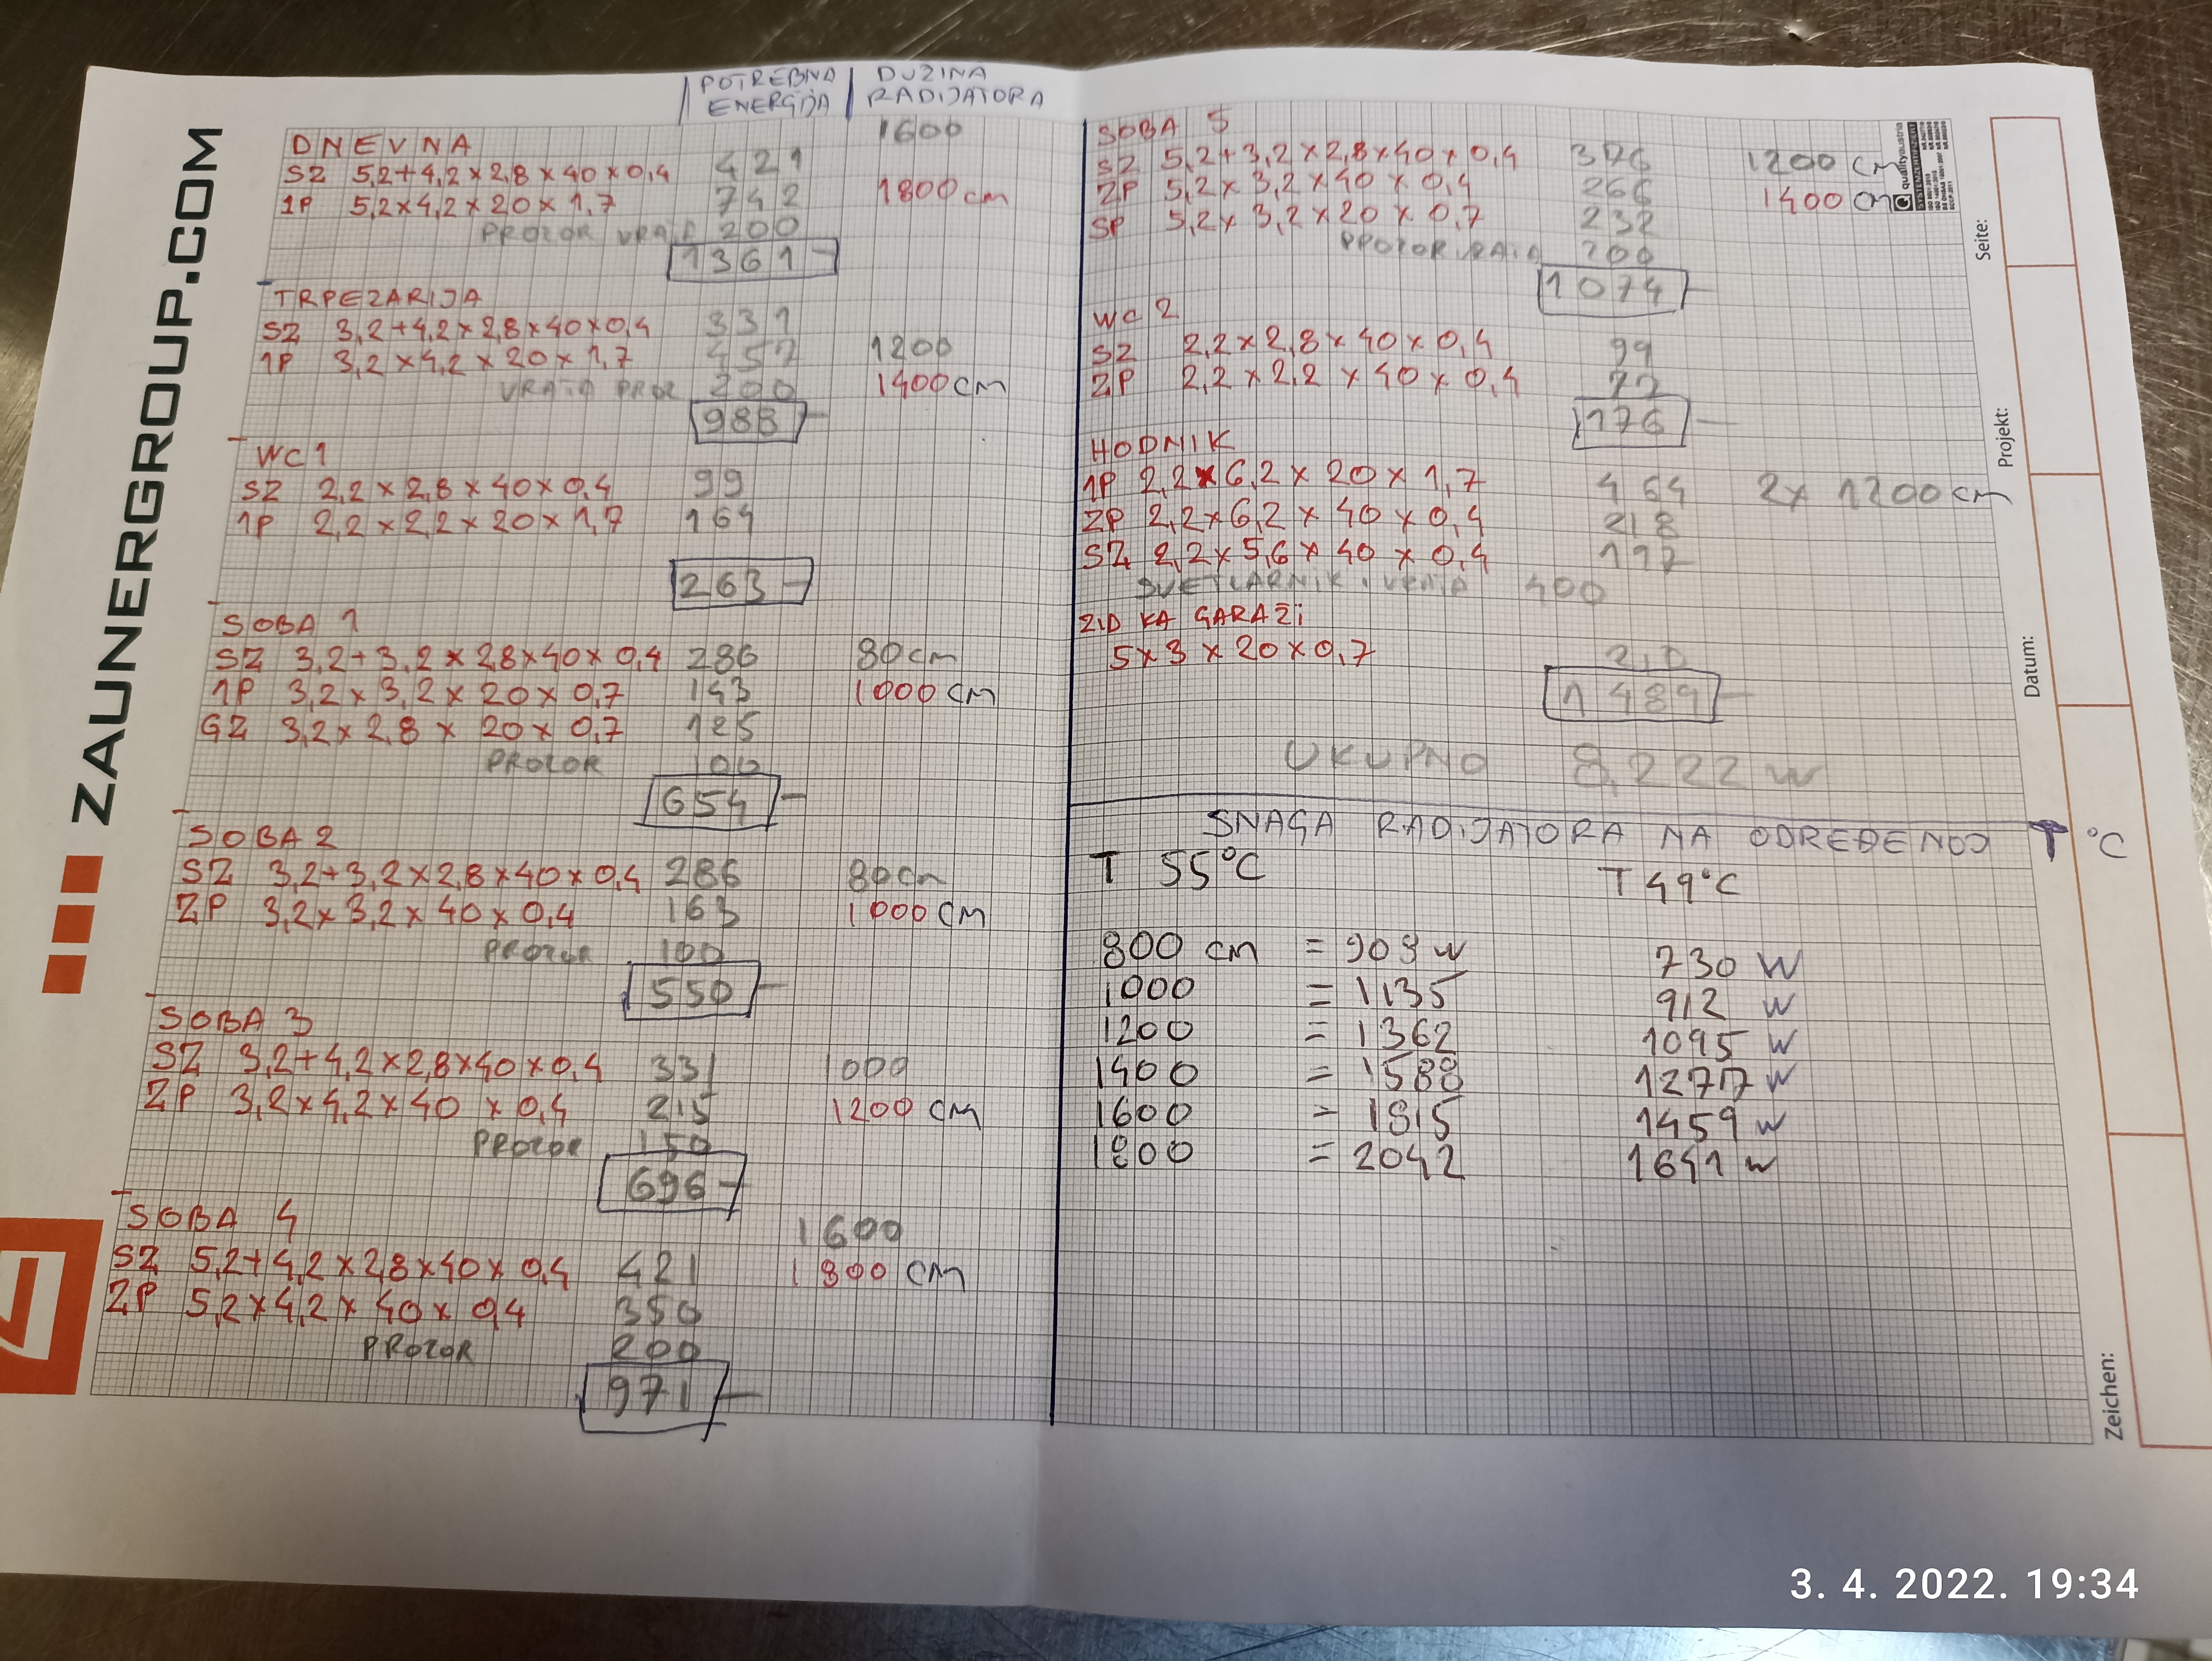 ZAUNERGROUP.COM
POTREBNA ENERGIJA
DUZINA RADIJATORA
DNEVNA 1600
SZ 5,2+4,2×2,8×40×0,4 421
1P 5,2×4,2×20×1,7 742 1800 cm
PROZOR VRATA 200
1361
TRPEZARIJA
SZ 3,2+4,2×2,8×40×0,4 331
1P 3,2×4,2×20×1,7 457 1200
VRATA PROZ 200 1400 cm
988
WC1
SZ 2,2×2,8×40×0,4 99
1P 2,2×2,2×20×1,7 164
263
SOBA 1
SZ 3,2+3,2×2,8×40×0,4 286 80 cm
1P 3,2×3,2×20×0,7 143 1000 cm
GZ 3,2×2,8×20×0,7 125
PROZOR 100
654
SOBA 2
SZ 3,2+3,2×2,8×40×0,4 286 80 cm
ZP 3,2×3,2×40×0,4 163 1000 cm
PROZOR 100
550
SOBA 3
SZ 3,2+4,2×2,8×40×0,4 331 1000
ZP 3,2×4,2×40×0,4 215 1200 cm
PROZOR 150
696
SOBA 4 1600
SZ 5,2+4,2×2,8×40×0,4 421 1800 cm
ZP 5,2×4,2×40×0,4 350
PROZOR 200
971
SOBA 5
SZ 5,2+3,2×2,8×40×0,4 376 1200 cm
ZP 5,2×3,2×40×0,4 266 1400 cm
SP 5,2×3,2×20×0,7 232
200
1074
WC 2
SZ 2,2×2,8×40×0,4 99
ZP 2,2×2,2×40×0,4 77
176
HODNIK
1P 2,2×6,2×20×1,7 464 2× 1200 cm
ZP 2,2×6,2×40×0,4 218
SZ 2,2×5,6×40×0,4 197
SVETLARNIK I VRATA 400
ZID KA GARAŽI
5×3×20×0,7
1489
UKUPNO 8,222 W
SNAGA RADIJATORA NA ODREĐENOJ T °C
T 55°C T 49°C
800 cm = 908 W 730 W
1000 = 1135 912 W
1200 = 1362 1095 W
1400 = 1588 1277 W
1600 = 1815 1459 W
1800 = 2042 1641 W
qualityaustria
Seite:
Projekt:
Datum:
Zeichen:
3. 4. 2022. 19:34